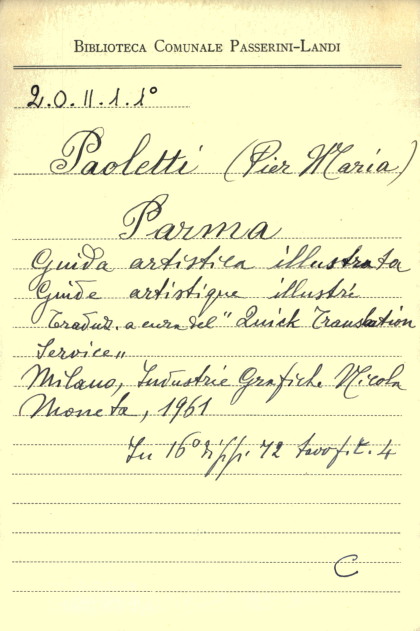 BIBLIOTECA COMUNALE PASSERINI-LANDI
2.O.II.1.1°
Paoletti (Pier Maria)
Parma
Guida artistica illustrata
Guide artistique illustré
Traduz. a cura del "Quick Translation
Service"
Milano, Industrie Grafich. Nicola
Moneta, 1961
In 16° pp. 72 tavof.t. 4
C